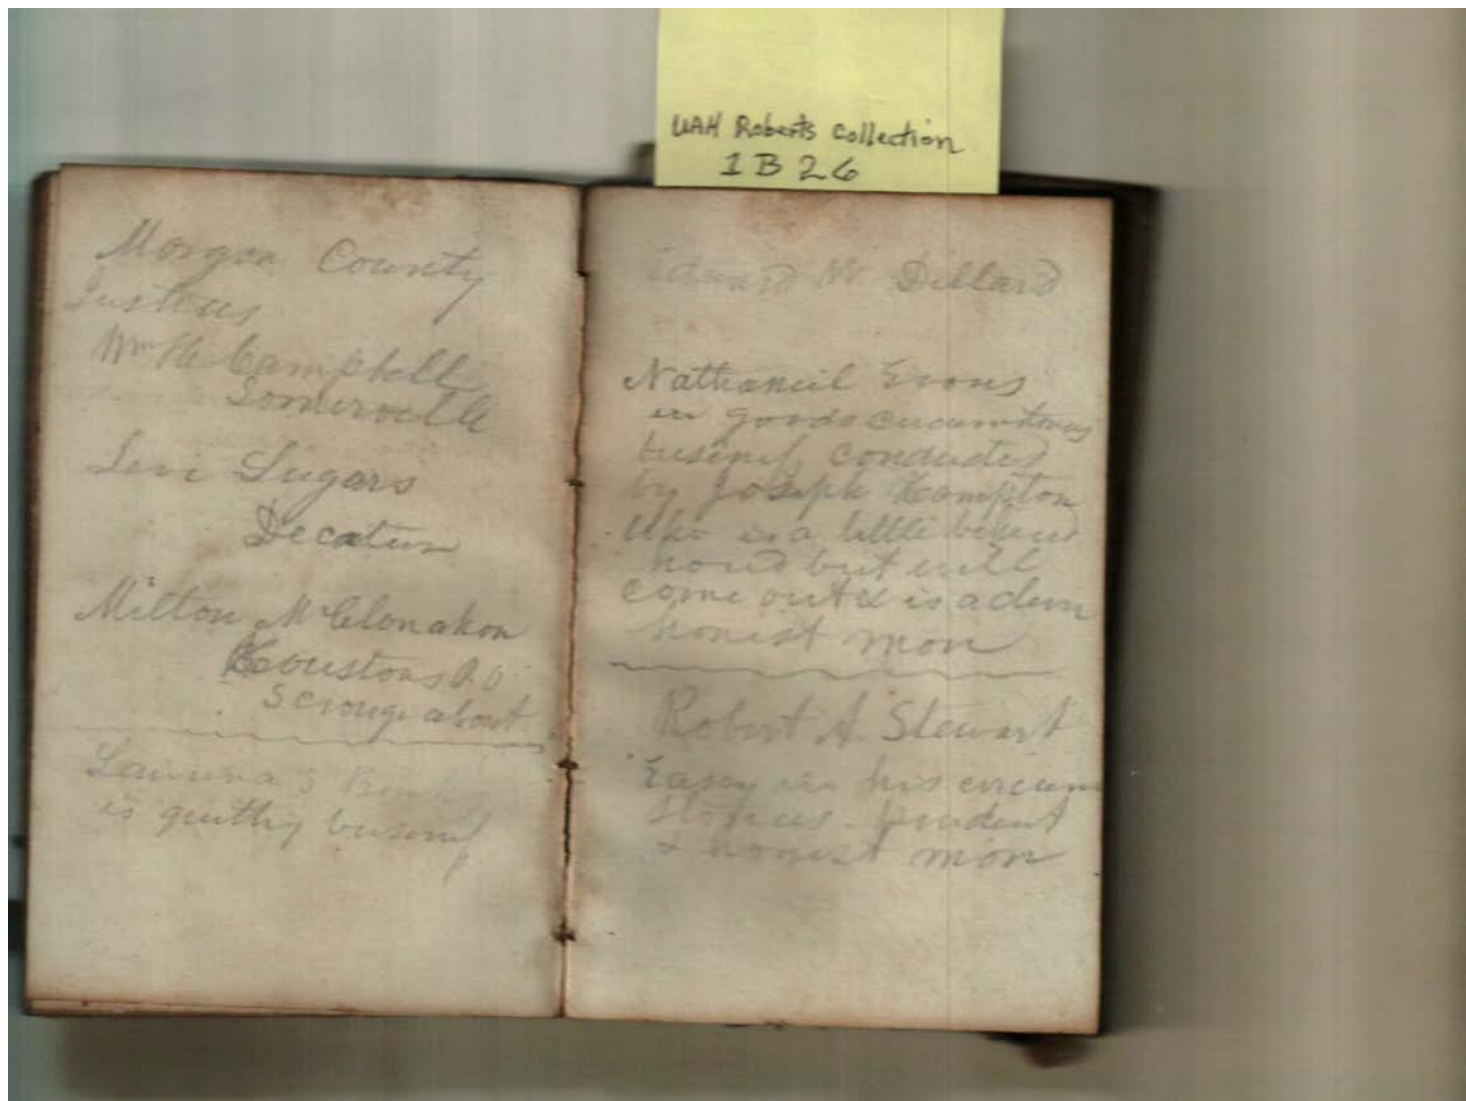 UAH Roberts Collection
1 B 26
Morgan County
Justices
Wm H Campbell
Somerville
Levi Sugars
Decatur
Milton McClonahon
Houstons P.O.
Scrougeabout
is quitting business
Edward W Dillard
Nathaniel Evans
in goods circumstances
business conducted
by Joseph Hampton
who is a little behind
hand but will
come out & is a
honest man
Robert A. Stewart
Easey in his circum
stances - prudent
& honest man